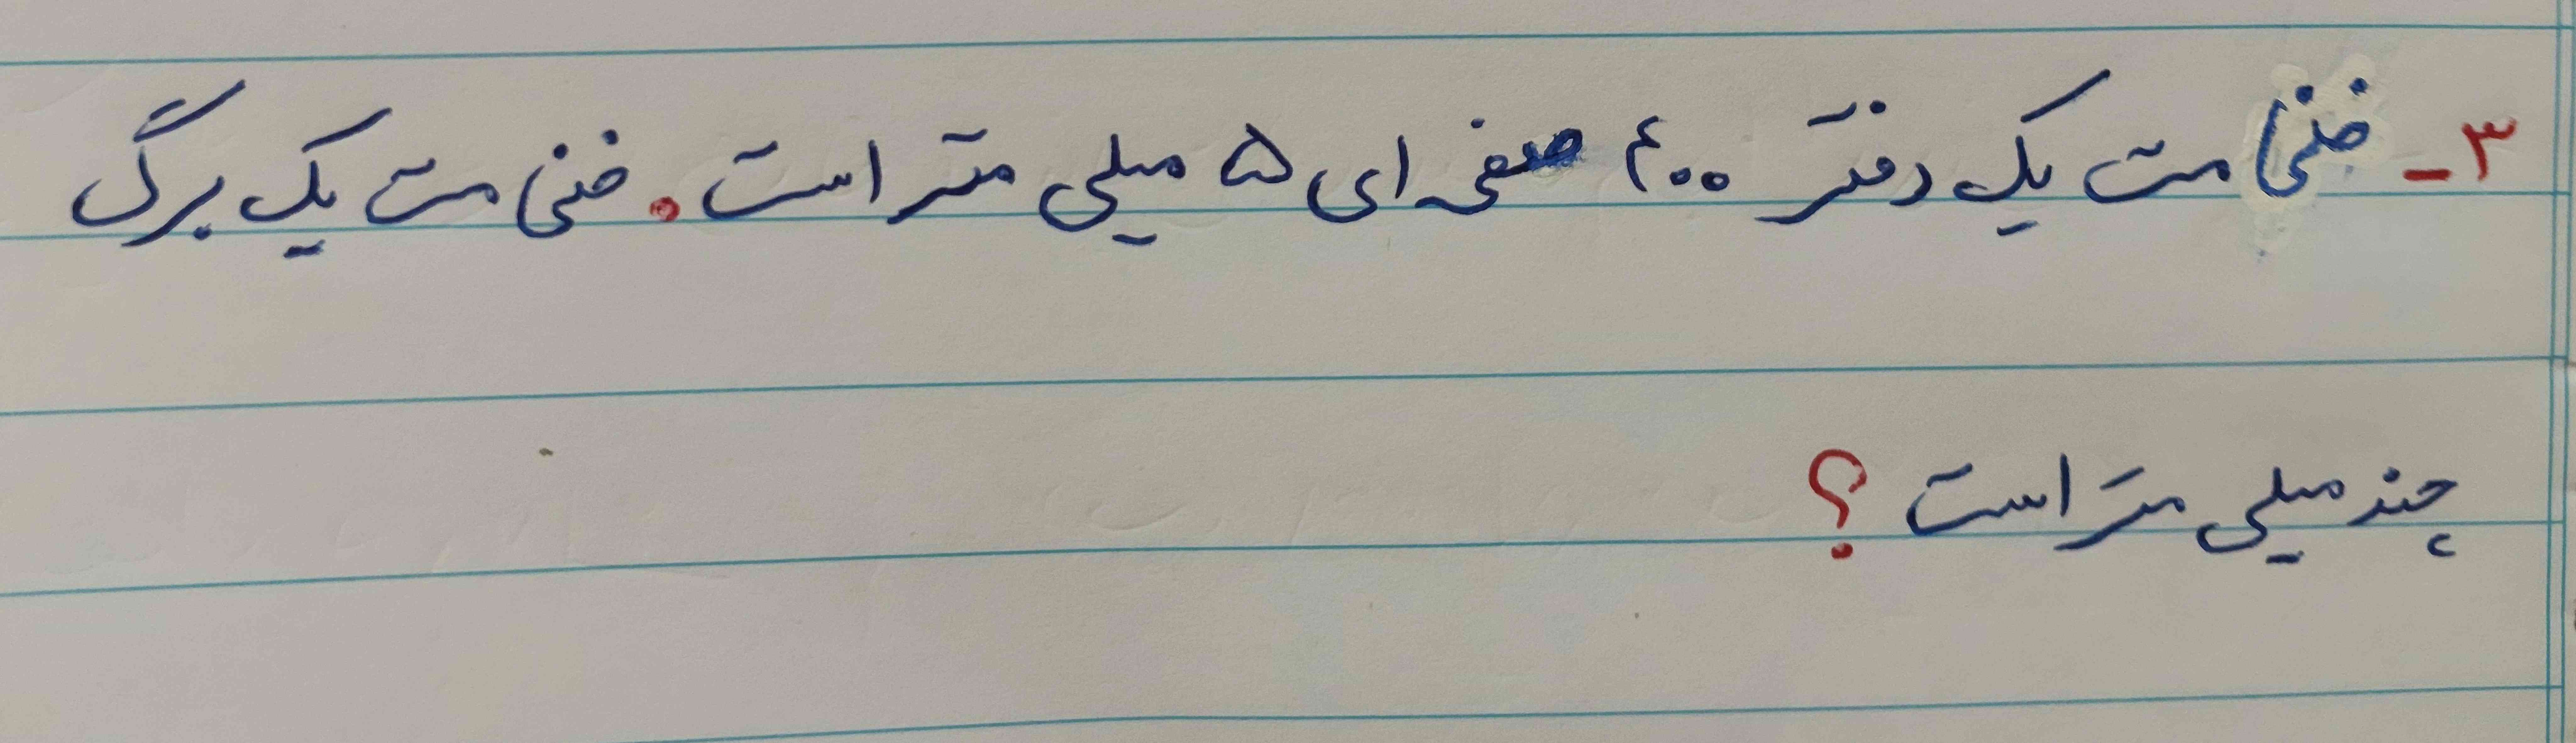 ۳- ضخامت یک دفتر ۴۰۰ صفحه ای ۵ میلی متر است. ضخامت یک برگ
چند میلی متر است؟